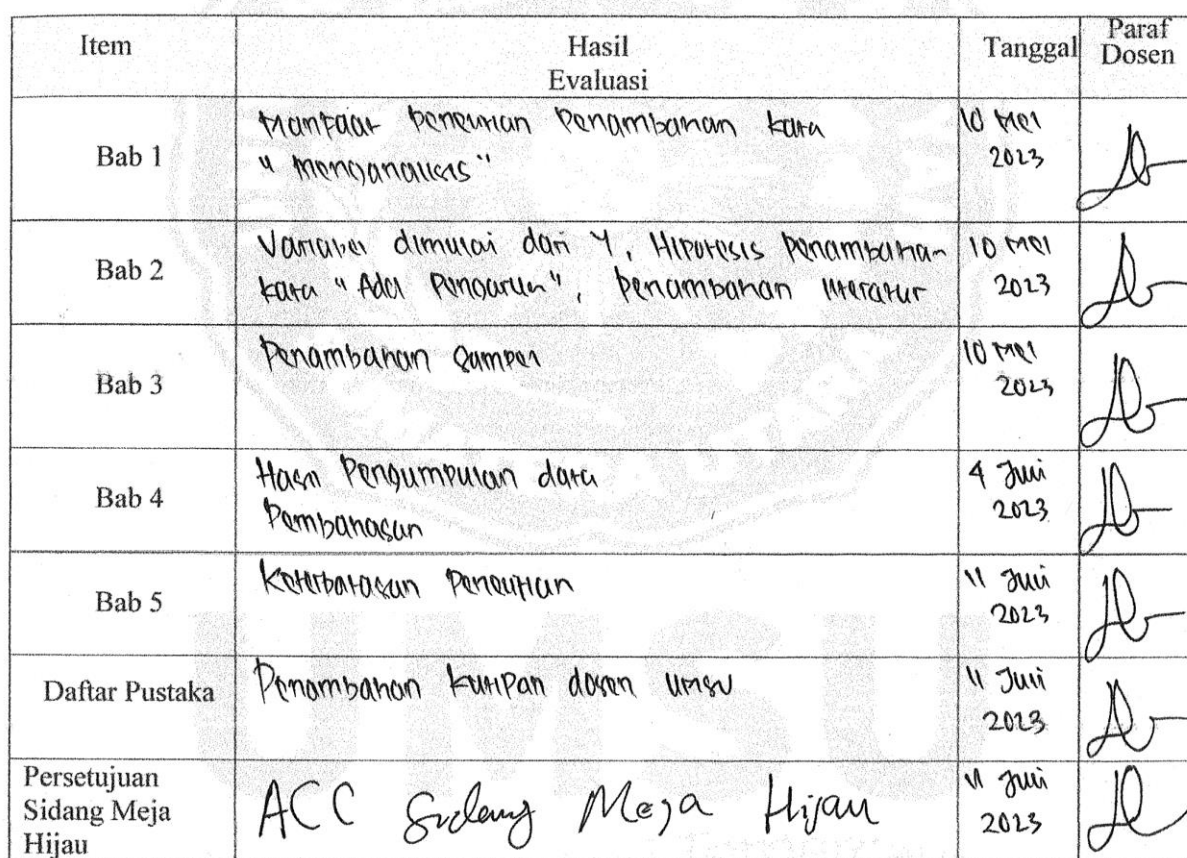 Item
Hasil
Evaluasi
Tanggal
Paraf
Dosen
Bab 1
Manfaat Penelitian Penambahan kata
"Menganalisis"
10 Mei
2023
Bab 2
Variabel dimulai dari Y, Hipotesis Penambahan
kata "Ada Pengaruh", Penambahan literatur
10 Mei
2023
Bab 3
Penambahan Sampel
10 Mei
2023
Bab 4
Hasil Pengumpulan data
Pembahasan
4 Juni
2023
Bab 5
Keterbatasan Penelitian
11 Juni
2023
Daftar Pustaka
Penambahan kutipan dosen UMSU
11 Juni
2023
Persetujuan
Sidang Meja
Hijau
ACC Sidang Meja Hijau
11 Juni
2023
UMSU